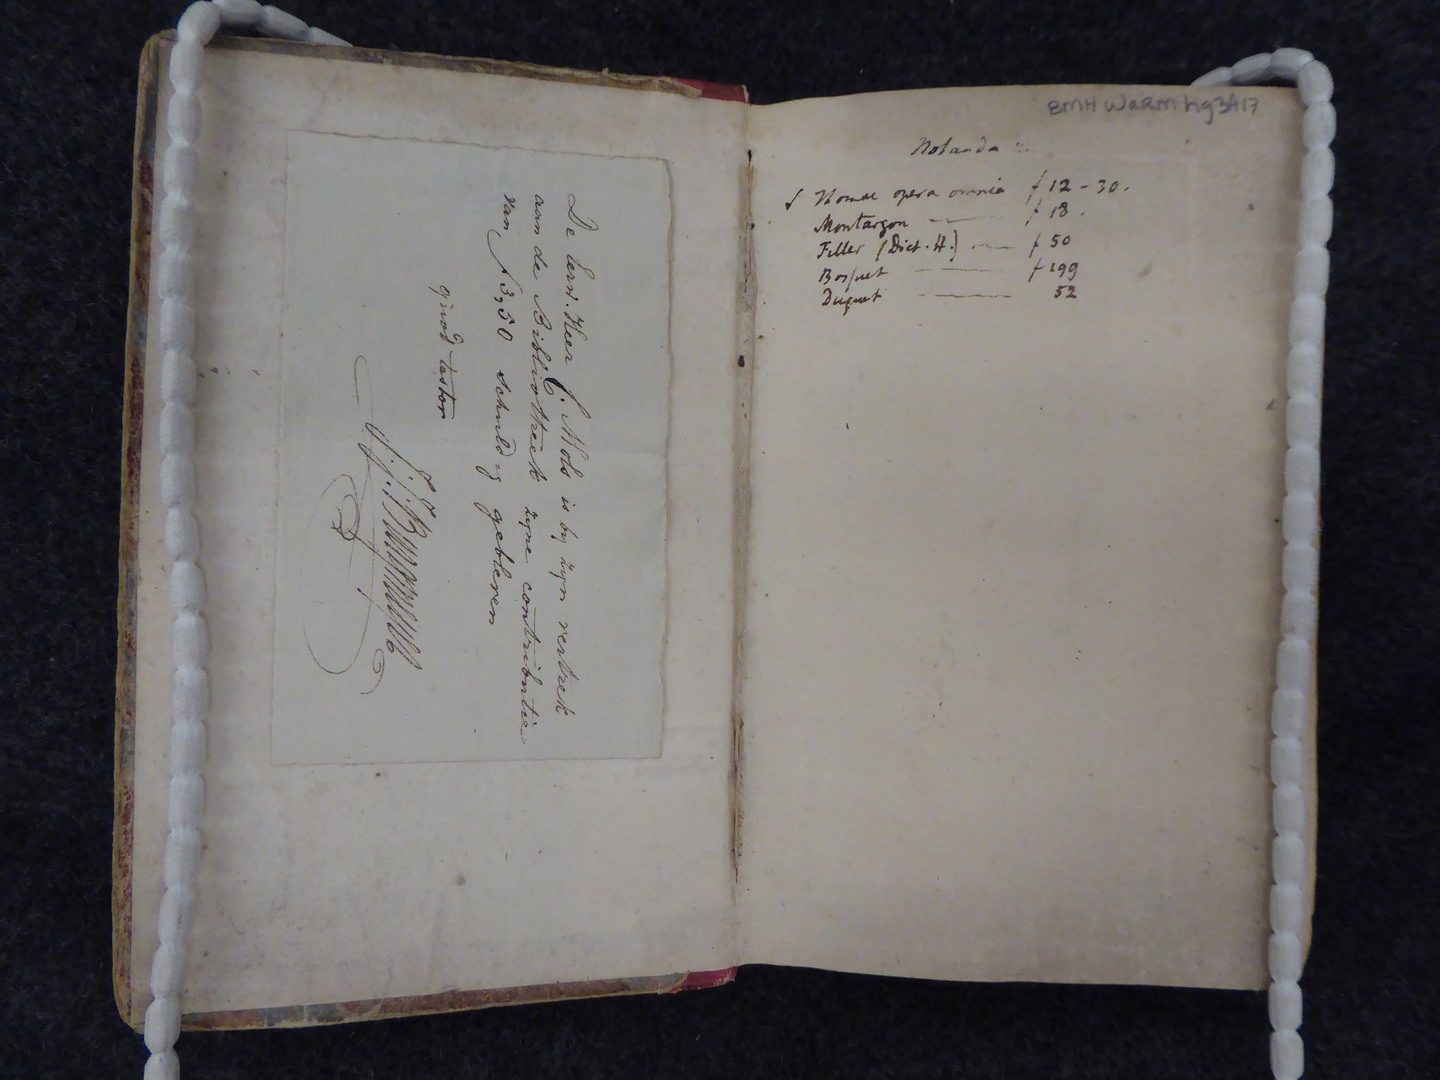 De Eerw. Heer C. Mols is by zyn vertrek
aan de Bibliotheek zyne contributie
van f 3,50 schuldig gebleven
quod testor
J. J.
BMH WARM hg3A17
Notanda
Thomae opera omnia f 12 - 30.
Montargon —— f 18.
Feller (Dict. H.) —— f 50
Bossuet —— f 199
Duguet —— 52